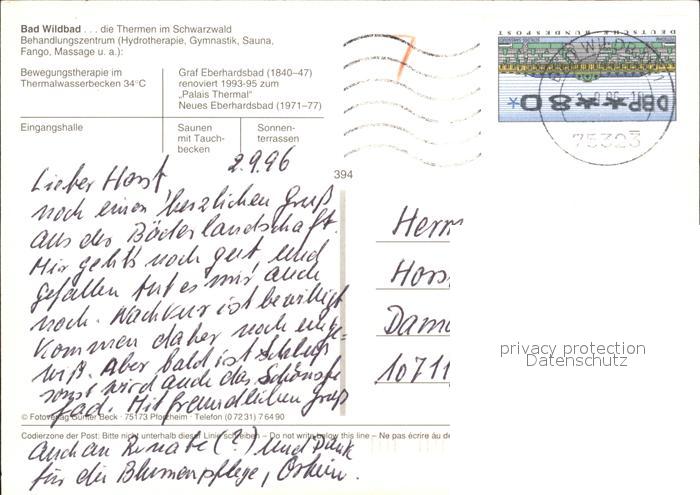 Bad Wildbad . . . die Thermen im Schwarzwald
Behandlungszentrum (Hydrotherapie, Gymnastik, Sauna,
Fango, Massage u. a.):
Bewegungstherapie im
Thermalwasserbecken 34°C
Graf Eberhardsbad (1840–47)
renoviert 1993-95 zum
„Palais Thermal"
Neues Eberhardsbad (1971–77)
Eingangshalle
Saunen
mit Tauch-
becken
Sonnen-
terrassen
DEUTSCHE BUNDESPOST
DBP***80*
75323
394
2.9.96
Lieber Horst
noch einen herzlichen Gruß
aus der Bäderlandschaft.
Mir geht's noch gut, und
gefallen tut es mir auch
noch. Nachkur ist bewilligt
kommen daher noch unge-
wiß. Aber bald ist Schluß
sonst wird auch das Schönste
fad. Mit freundlichen Gruß
© Fotoverlag Günter Beck · 75173 Pforzheim · Telefon (0 72 31) 7 64 90
Codierzone der Post: Bitte nicht unterhalb dieser Linie schreiben – Do not write below this line – Ne pas écrire au de
auch an Renate (?) und Dank
für die Blumenpflege,
Herrn
Horst
10711
privacy protection
Datenschutz